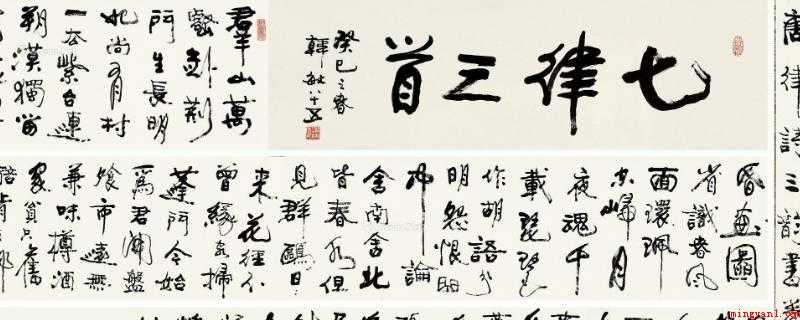 七律三首
癸巳之春
韓敏八十五
羣山萬
壑赴荆
門生長明
妃尚有村
一去紫台連
朔漠獨留
昏畫圖
省識春風
面環珮
空歸月
夜魂千
載琵琶
作胡語分
明怨恨曲
中論
舍南舍北
皆春水但
見群鷗日
來花徑不
曾緣客掃
蓬門今始
爲君開盤
飧市遠無
兼味樽酒
家貧只舊
醅肯
唐律詩三
mingyanl.com